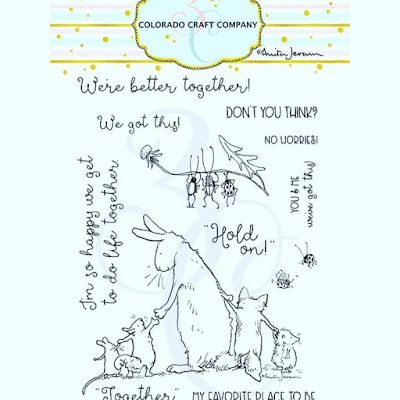 COLORADO CRAFT COMPANY
©Anita Jeram
We're better together!
DON'T YOU THINK?
We got this!
NO WORRIES!
I'm so happy we get
to do life together
YOU & ME
we've got this!
"Hold
on!"
©Anita Jeram
"Together"
MY FAVORITE PLACE TO BE